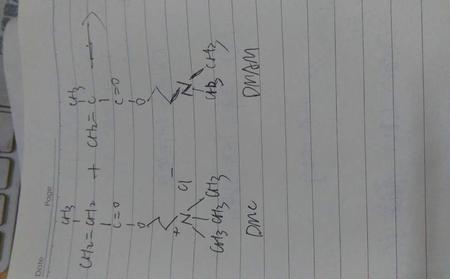 Date
Page
CH3
CH2=CH2
C=O
O
+N
Cl
−
CH3 CH3 CH3
DMC
+
CH3
CH2=C
C=O
O
N
CH3 CH3
DMAM